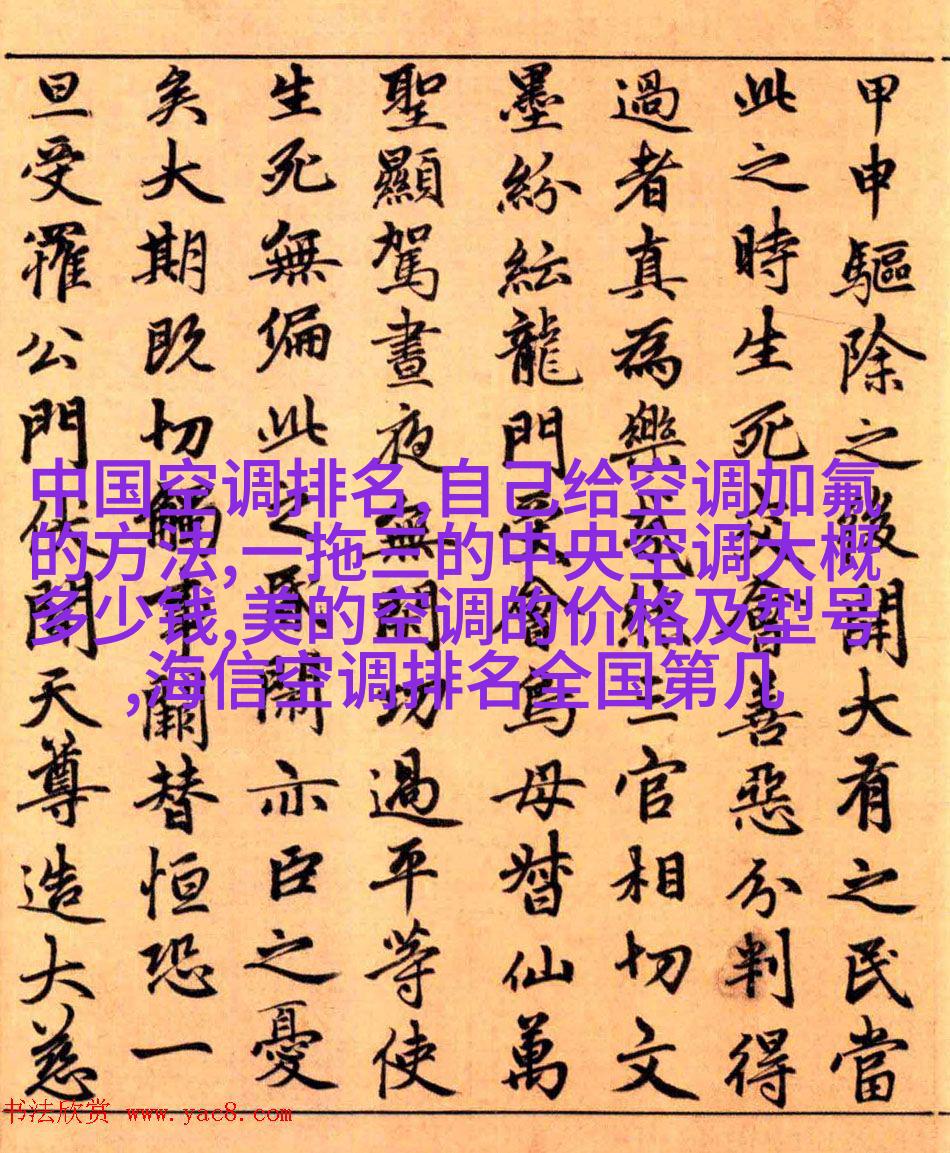 甲申驅除之後開大有之民當
此之時生死災會善惡分判得
過者真為樂三官相切文
墨紛紜龍門受會鳥母督仙萬
聖顯駕晝夜無閑功過平等使
生死無偏此之亦臣之憂
矣大期既切觸事關替恒恐一
旦受罹公門伏聞天尊造大慈
中国空调排名,自己给空调加氟
的方法,一拖三的中央空调大概
多少钱,美的空调的价格及型号
,海信空调排名全国第几
书法欣赏 www.yac8.com